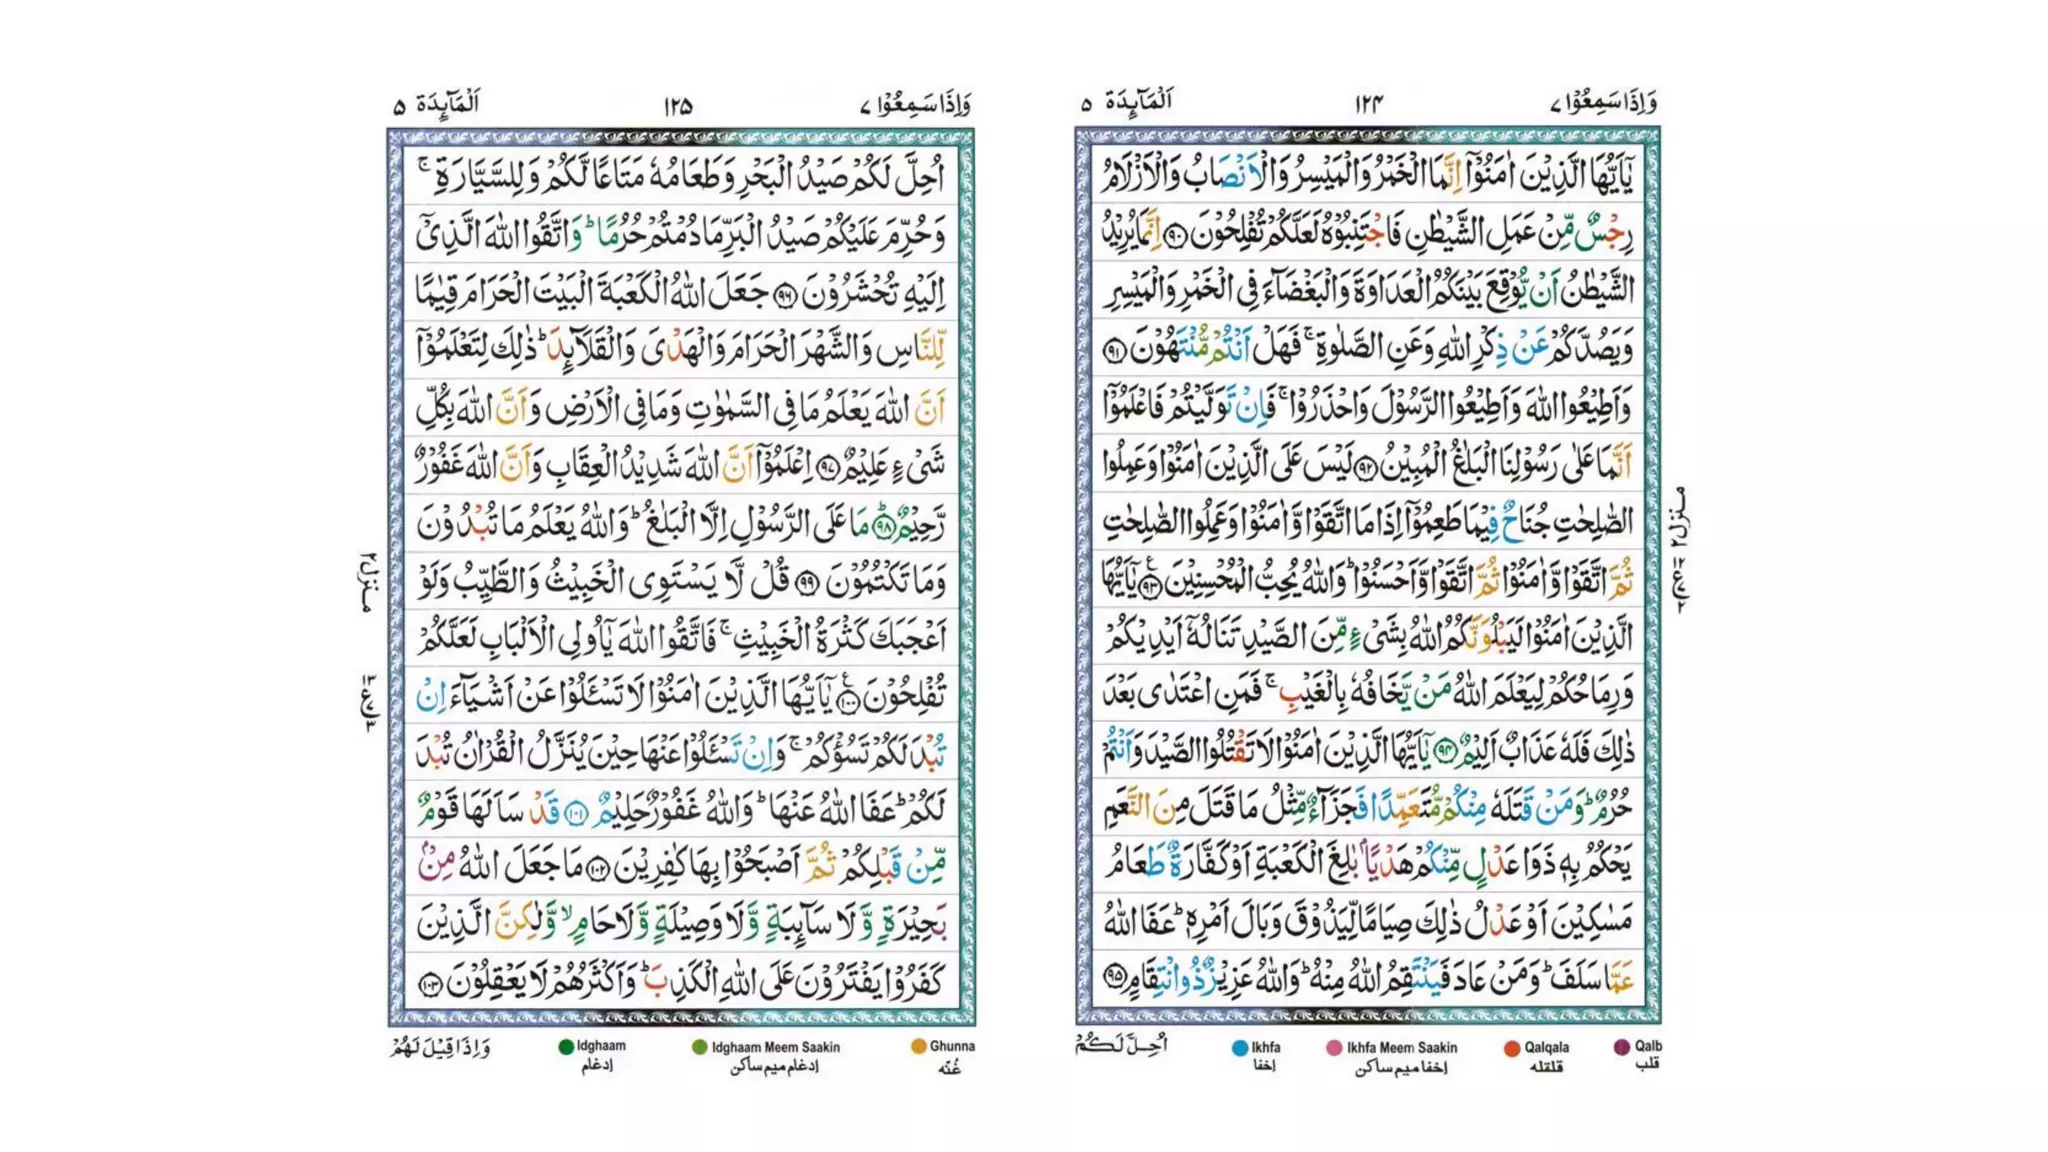 وَاِذَا سَمِعُوْا ٧
١٢۴
اَلْمَآىِٕدَة ٥
يٰۤاَيُّهَا الَّذِيْنَ اٰمَنُوْۤا اِنَّمَا الْخَمْرُ وَالْمَيْسِرُ وَالْاَنْصَابُ وَالْاَزْلَامُ
رِجْسٌ مِّنْ عَمَلِ الشَّيْطٰنِ فَاجْتَنِبُوْهُ لَعَلَّكُمْ تُفْلِحُوْنَ ۹۰ اِنَّمَا يُرِيْدُ
الشَّيْطٰنُ اَنْ يُّوْقِعَ بَيْنَكُمُ الْعَدَاوَةَ وَالْبَغْضَآءَ فِى الْخَمْرِ وَالْمَيْسِرِ
وَيَصُدَّكُمْ عَنْ ذِكْرِ اللّٰهِ وَعَنِ الصَّلٰوةِ ۚ فَهَلْ اَنْتُمْ مُّنْتَهُوْنَ ۹۱
وَاَطِيْعُوا اللّٰهَ وَاَطِيْعُوا الرَّسُوْلَ وَاحْذَرُوْا ۚ فَاِنْ تَوَلَّيْتُمْ فَاعْلَمُوْۤا
اَنَّمَا عَلٰى رَسُوْلِنَا الْبَلٰغُ الْمُبِيْنُ ۹۲ لَيْسَ عَلَى الَّذِيْنَ اٰمَنُوْا وَعَمِلُوا
الصّٰلِحٰتِ جُنَاحٌ فِيْمَا طَعِمُوْۤا اِذَا مَا اتَّقَوْا وَّاٰمَنُوْا وَعَمِلُوا الصّٰلِحٰتِ
ثُمَّ اتَّقَوْا وَّاٰمَنُوْا ثُمَّ اتَّقَوْا وَّاَحْسَنُوْا ؕ وَاللّٰهُ يُحِبُّ الْمُحْسِنِيْنَ ۹۳ يٰۤاَيُّهَا
الَّذِيْنَ اٰمَنُوْا لَيَبْلُوَنَّكُمُ اللّٰهُ بِشَىْءٍ مِّنَ الصَّيْدِ تَنَالُهٗۤ اَيْدِيْكُمْ
وَرِمَاحُكُمْ لِيَعْلَمَ اللّٰهُ مَنْ يَّخَافُهٗ بِالْغَيْبِ ۚ فَمَنِ اعْتَدٰى بَعْدَ
ذٰلِكَ فَلَهٗ عَذَابٌ اَلِيْمٌ ۹۴ يٰۤاَيُّهَا الَّذِيْنَ اٰمَنُوْا لَا تَقْتُلُوا الصَّيْدَ وَاَنْتُمْ
حُرُمٌ ؕ وَمَنْ قَتَلَهٗ مِنْكُمْ مُّتَعَمِّدًا فَجَزَآءٌ مِّثْلُ مَا قَتَلَ مِنَ النَّعَمِ
يَحْكُمُ بِهٖ ذَوَا عَدْلٍ مِّنْكُمْ هَدْيًۢا بٰلِغَ الْكَعْبَةِ اَوْ كَفَّارَةٌ طَعَامُ
مَسٰكِيْنَ اَوْ عَدْلُ ذٰلِكَ صِيَامًا لِّيَذُوْقَ وَبَالَ اَمْرِهٖ ؕ عَفَا اللّٰهُ
عَمَّا سَلَفَ ؕ وَمَنْ عَادَ فَيَنْتَقِمُ اللّٰهُ مِنْهُ ؕ وَاللّٰهُ عَزِيْزٌ ذُو انْتِقَامٍ ۹۵
منزل ٢
اُحِلَّ لَكُمْ
Ikhfa
اخفا
Ikhfa Meem Saakin
اخفا ميم ساكن
Qalqala
قلقله
Qalb
قلب
وَاِذَا سَمِعُوْا ٧
١٢٥
اَلْمَآىِٕدَة ٥
اُحِلَّ لَكُمْ صَيْدُ الْبَحْرِ وَطَعَامُهٗ مَتَاعًا لَّكُمْ وَلِلسَّيَّارَةِ ۚ
وَحُرِّمَ عَلَيْكُمْ صَيْدُ الْبَرِّ مَا دُمْتُمْ حُرُمًا ؕ وَاتَّقُوا اللّٰهَ الَّذِىْۤ
اِلَيْهِ تُحْشَرُوْنَ ۹۶ جَعَلَ اللّٰهُ الْكَعْبَةَ الْبَيْتَ الْحَرَامَ قِيٰمًا
لِّلنَّاسِ وَالشَّهْرَ الْحَرَامَ وَالْهَدْىَ وَالْقَلَآىِٕدَ ؕ ذٰلِكَ لِتَعْلَمُوْۤا
اَنَّ اللّٰهَ يَعْلَمُ مَا فِى السَّمٰوٰتِ وَمَا فِى الْاَرْضِ وَاَنَّ اللّٰهَ بِكُلِّ
شَىْءٍ عَلِيْمٌ ۹۷ اِعْلَمُوْۤا اَنَّ اللّٰهَ شَدِيْدُ الْعِقَابِ وَاَنَّ اللّٰهَ غَفُوْرٌ
رَّحِيْمٌ ؕ ۹۸ مَا عَلَى الرَّسُوْلِ اِلَّا الْبَلٰغُ ؕ وَاللّٰهُ يَعْلَمُ مَا تُبْدُوْنَ
وَمَا تَكْتُمُوْنَ ۹۹ قُلْ لَّا يَسْتَوِى الْخَبِيْثُ وَالطَّيِّبُ وَلَوْ
اَعْجَبَكَ كَثْرَةُ الْخَبِيْثِ ۚ فَاتَّقُوا اللّٰهَ يٰۤاُولِى الْاَلْبَابِ لَعَلَّكُمْ
تُفْلِحُوْنَ ۱۰۰ يٰۤاَيُّهَا الَّذِيْنَ اٰمَنُوْا لَا تَسْـَٔلُوْا عَنْ اَشْيَآءَ اِنْ
تُبْدَ لَكُمْ تَسُؤْكُمْ ۚ وَاِنْ تَسْـَٔلُوْا عَنْهَا حِيْنَ يُنَزَّلُ الْقُرْاٰنُ تُبْدَ
لَكُمْ ؕ عَفَا اللّٰهُ عَنْهَا ؕ وَاللّٰهُ غَفُوْرٌ حَلِيْمٌ ۱۰۱ قَدْ سَاَلَهَا قَوْمٌ
مِّنْ قَبْلِكُمْ ثُمَّ اَصْبَحُوْا بِهَا كٰفِرِيْنَ ۱۰۲ مَا جَعَلَ اللّٰهُ مِنْۢ
بَحِيْرَةٍ وَّلَا سَآىِٕبَةٍ وَّلَا وَصِيْلَةٍ وَّلَا حَامٍ ۙ وَّلٰكِنَّ الَّذِيْنَ
كَفَرُوْا يَفْتَرُوْنَ عَلَى اللّٰهِ الْكَذِبَ ؕ وَاَكْثَرُهُمْ لَا يَعْقِلُوْنَ ۱۰۳
منزل ٢
وَاِذَا قِيْلَ لَهُمْ
Idghaam
ادغام
Idghaam Meem Saakin
ادغام ميم ساكن
Ghunna
غُنّه